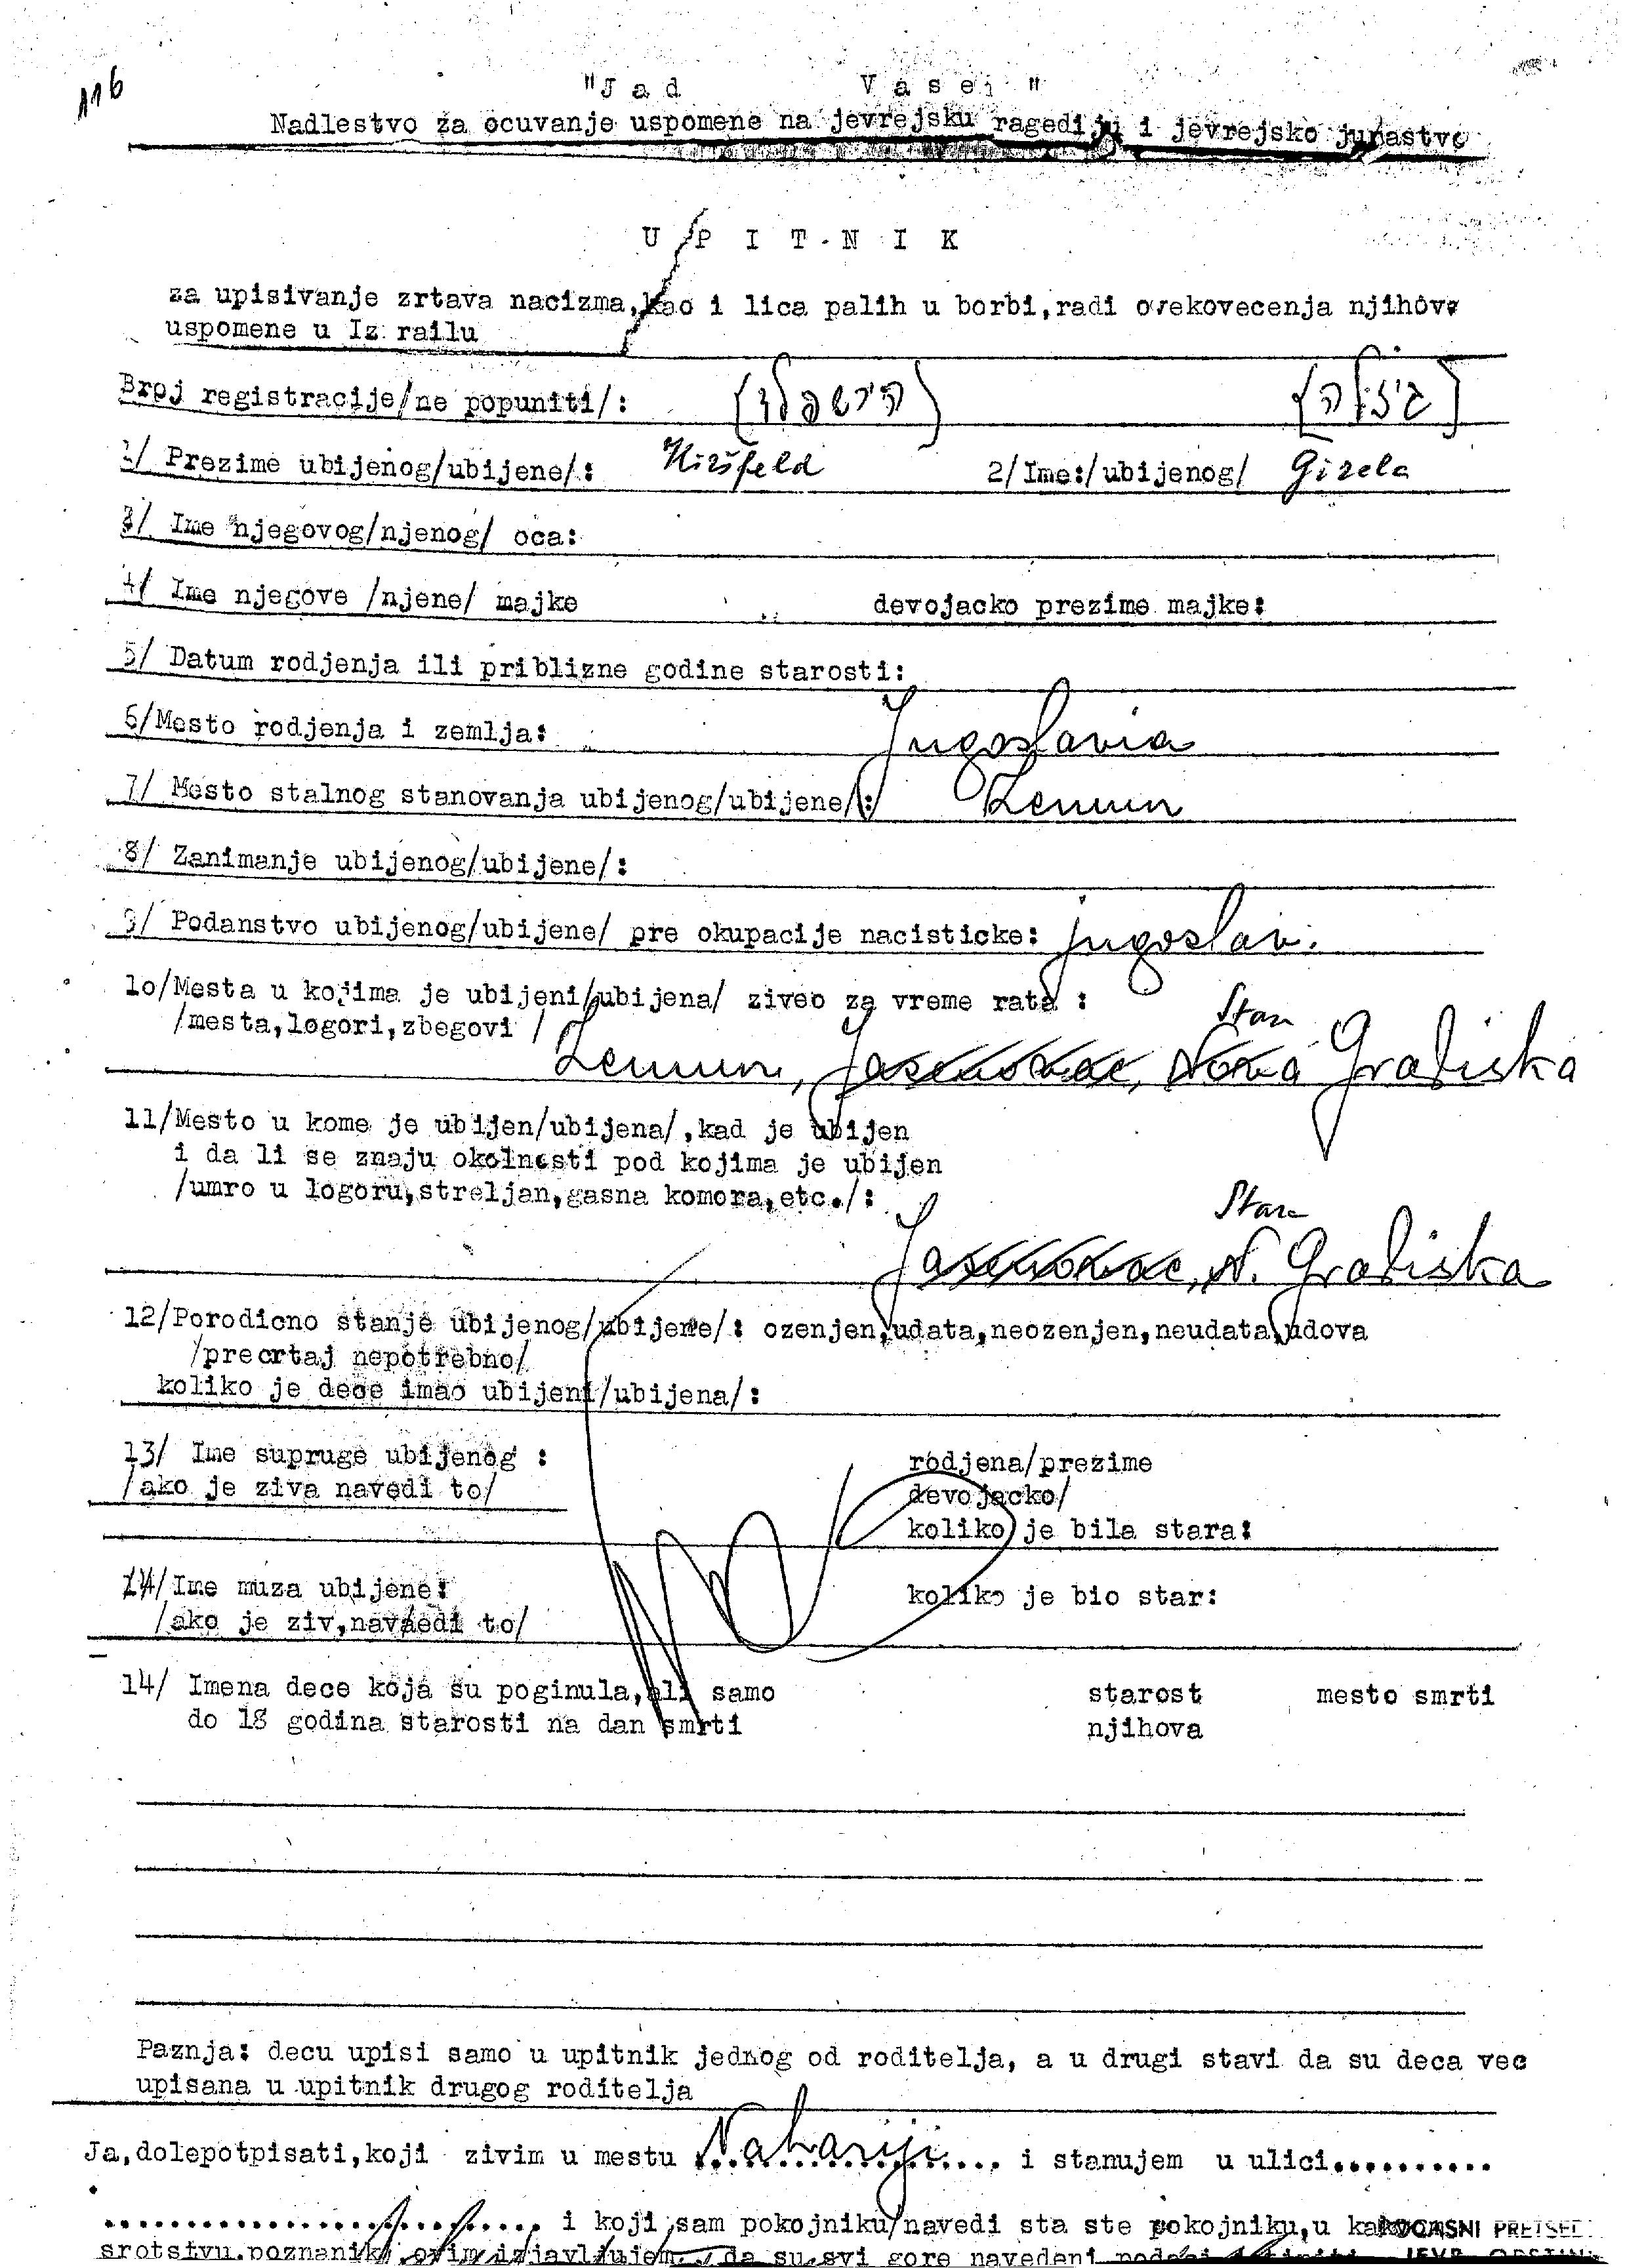 116
"Jad Vasei"
Nadlestvo za ocuvanje uspomene na jevrejsku ragediju i jevrejsko junastvo
U P I T N I K
za upisivanje zrtava nacizma, kao i lica palih u borbi, radi ovekovecenja njihove
uspomene u Iz railu
Broj registracije/ne popuniti/: [הירשפלד] [גיזלה]
1/ Prezime ubijenog/ubijene/: Hiršfeld 2/Ime:/ubijenog/ Gizela
3/ Ime njegovog/njenog/ oca:
4/ Ime njegove /njene/ majke devojacko prezime majke:
5/ Datum rodjenja ili priblizne godine starosti:
6/Mesto rodjenja i zemlja: Jugoslavia
7/ Mesto stalnog stanovanja ubijenog/ubijene/: Zemun
8/ Zanimanje ubijenog/ubijene/:
9/ Podanstvo ubijenog/ubijene/ pre okupacije nacisticke: jugoslav.
10/Mesta u kojima je ubijeni/ubijena/ ziveo za vreme rata : Stara
/mesta,logori,zbegovi /
Zemun, Jasenovac, Nova Gradiska
11/Mesto u kome je ubijen/ubijena/,kad je ubijen
i da li se znaju okolnosti pod kojima je ubijen
/umro u logoru,streljan,gasna komora,etc./: Stara
Jasenovac, N. Gradiska
12/Porodicno stanje ubijenog/ubijene/: ozenjen,udata,neozenjen,neudata,udova
/precrtaj nepotrebno/
koliko je dece imao ubijeni/ubijena/:
13/ Ime supruge ubijenog : rodjena/prezime
/ako je ziva navedi to/ devojacko/
koliko je bila stara:
14/Ime muza ubijene: koliko je bio star:
/ako je ziv,navaedi to/
14/ Imena dece koja su poginula,ali samo starost mesto smrti
do 18 godina starosti na dan smrti njihova
Paznja: decu upisi samo u upitnik jednog od roditelja, a u drugi stavi da su deca vec
upisana u upitnik drugog roditelja
Ja,dolepotpisati,koji zivim u mestu Nahariji i stanujem u ulici..........
.......................... i koji sam pokojniku/navedi sta ste pokojniku,u kakvom POCASNI PRETSED
srotstvu.poznanik/ ovim izjavljujem da su svi gore navedeni podaci JEVR. OPSTINE